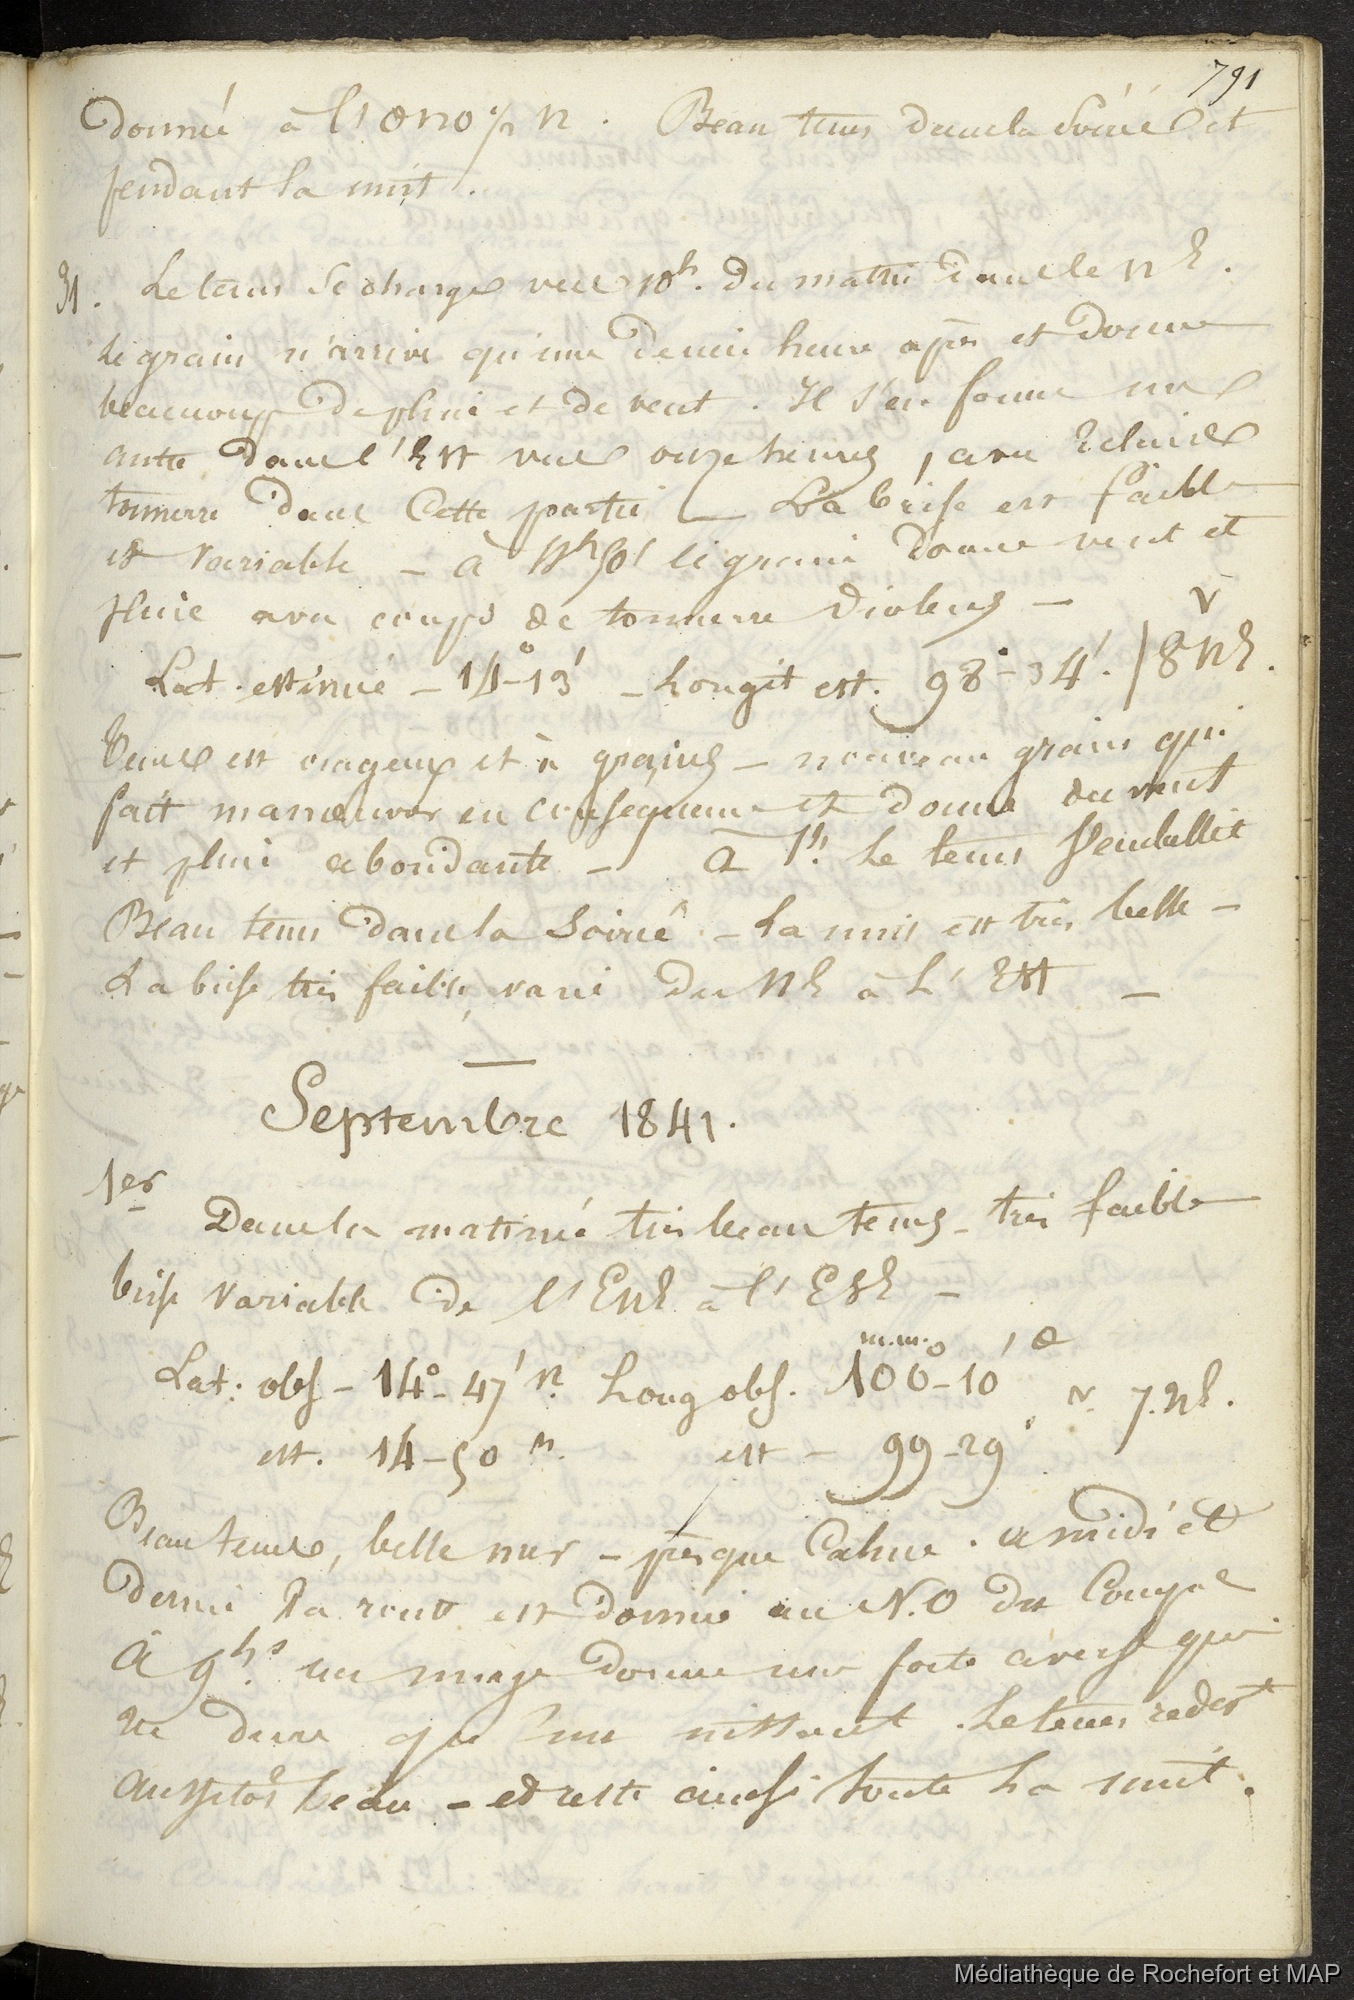 791
donnée à l'ONO ½ N. Beau tems dans la Soirée et
pendant la nuit.
31. Le tems se charge vers 10h. du matin dans le NE.
le grain n'arrive qu'une demie heure après et donne
beaucoup de pluie et de vent. Il s'en forme un
autre dans l'Est vers onze heures, avec Eclairs
tonnerre dans Cette partie — La brise est faible
et variable — à 11h50' le grain donne vent et
pluie avec coups de tonnerre violens —
Lat. estimée — 14°-13' — Longit est. 98°-34'. / V 8 NE.
Tems est orageux et à grains — nouveau grain qui
fait manœuvrer en conséquence et donne du vent
et pluie abondante — à 1h. Le tems s'embellit
Beau tems dans la Soirée — La nuit est très belle —
La brise très faible, varie du NE à L'Est —
Septembre 1841.
1er
Dans la matinée très beau tems — très faible
brise variable de l'ENE à l'ESE —
Lat. obs — 14°-47' N. Long obs. m.m. 100°-10' O
est. 14-50 N. est — 99-29' V. 7. NE.
Beau tems, belle mer — presque Calme. à midi et
demie La route est donnée au N.O du Compas
à 9hs. un nuage donne une forte averse qui
ne dure qu'un instant. Le tems redevt
aussitôt beau — et reste ainsi toute La nuit.
Médiathèque de Rochefort et MAP